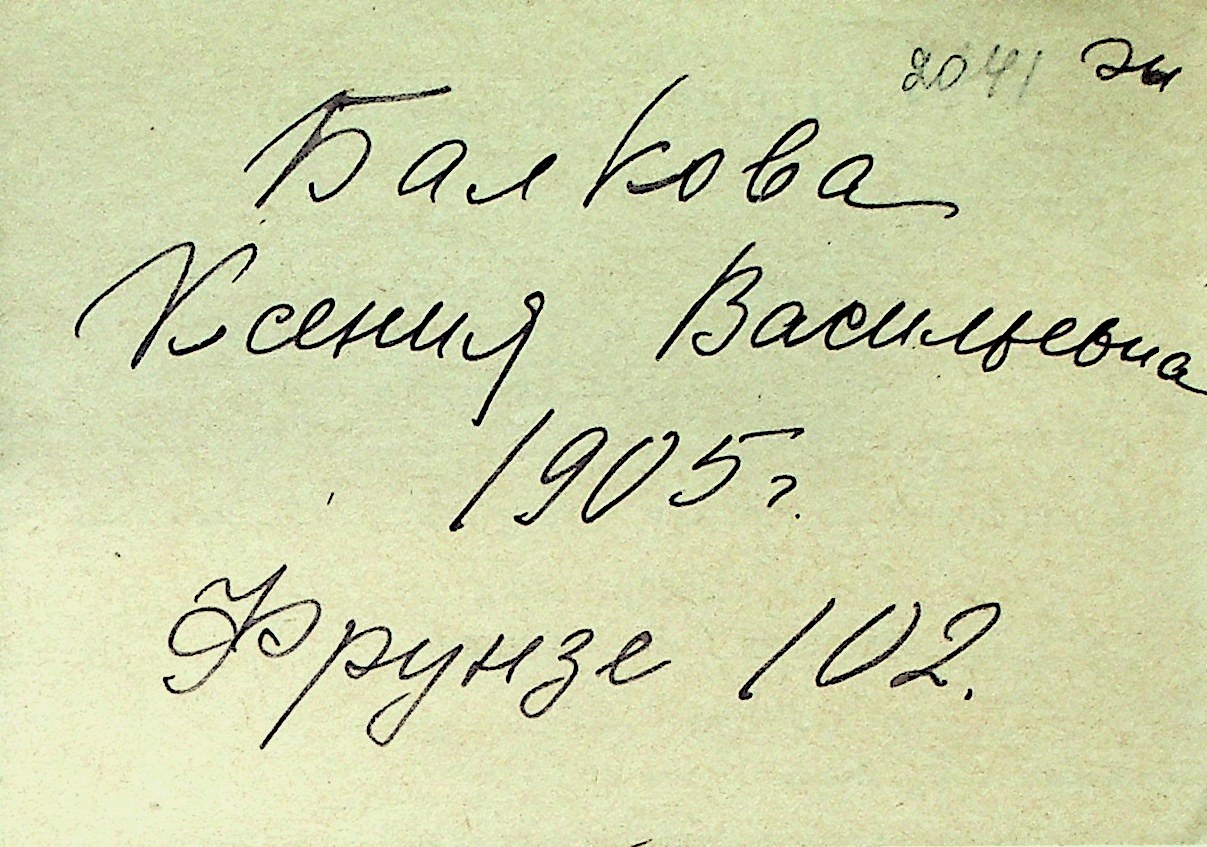 2041 эи
Балкова
Ксения Васильевна
1905 г.
Фрунзе 102.